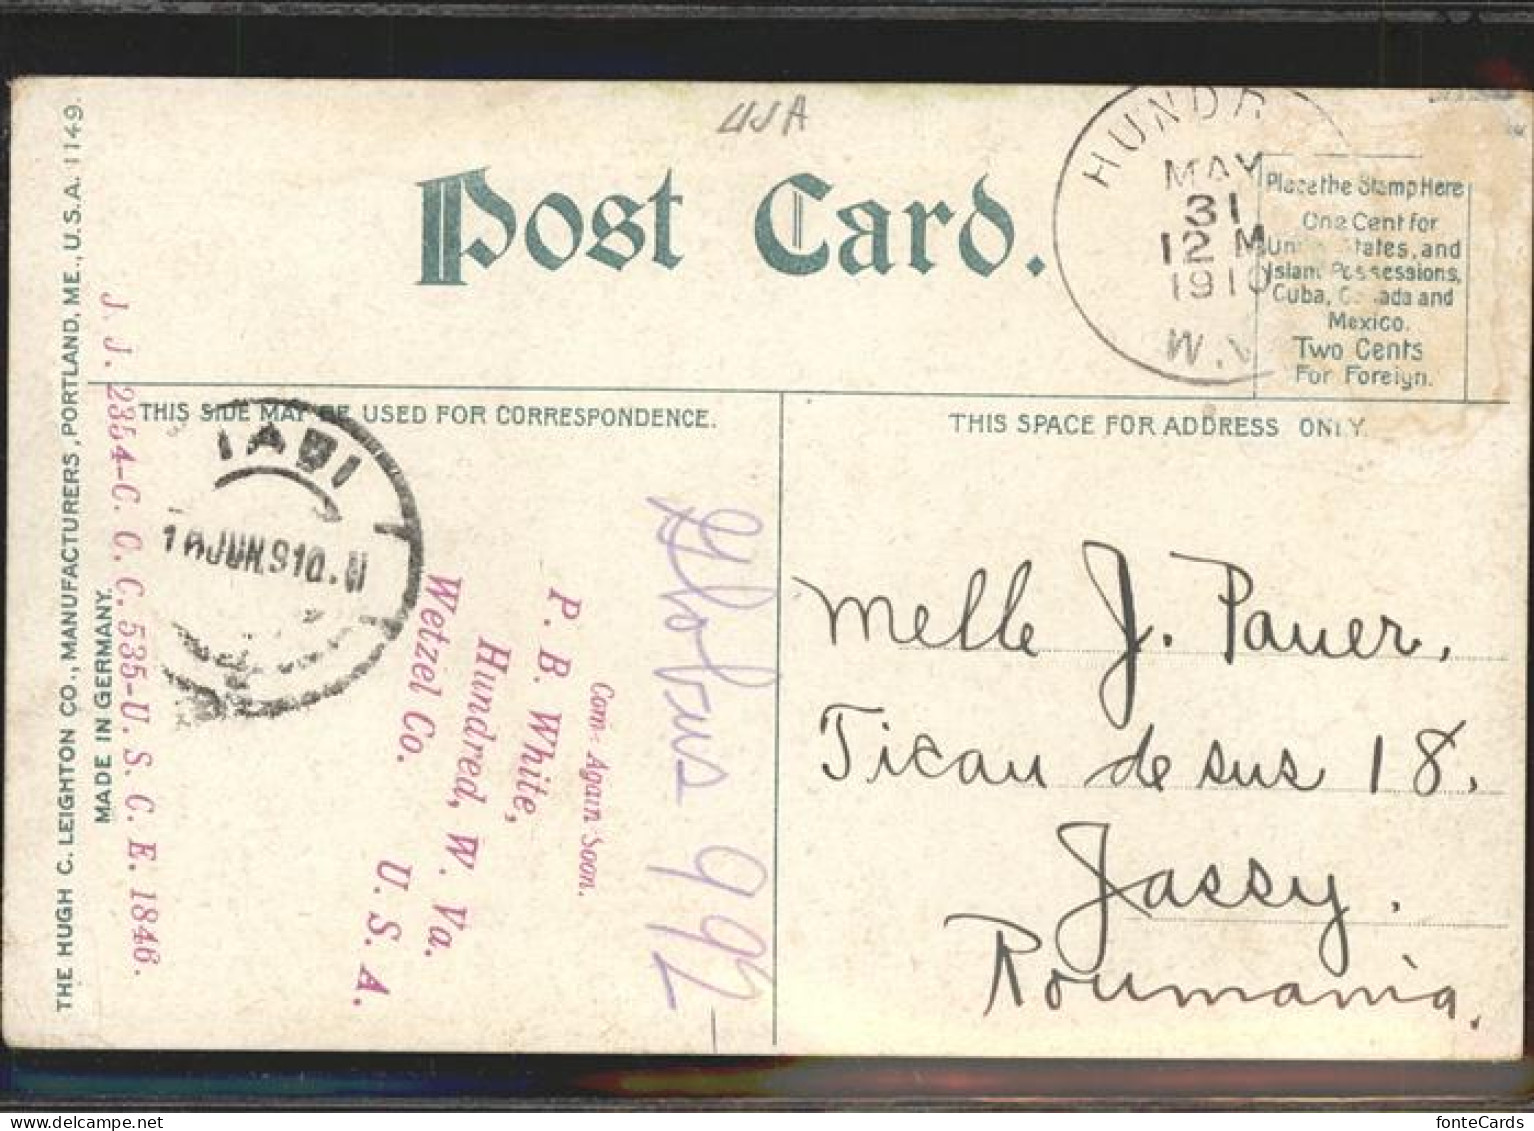 USA
Post Card.
HUNDR
MAY
31
12 M
1910
W.V
Place the Stamp Here
One Cent for
United States, and
Island Possessions,
Cuba, Canada and
Mexico.
Two Cents
For Foreign.
THIS SIDE MAY BE USED FOR CORRESPONDENCE.
THIS SPACE FOR ADDRESS ONLY.
THE HUGH C. LEIGHTON CO., MANUFACTURERS, PORTLAND, ME., U.S.A. 1149.
MADE IN GERMANY.
J. J. 2354-C. C. C. 535-U. S. C. E. 1846.
IAȘI
JUN.910.
Com- Again Soon.
P. B. White,
Hundred, W. Va.
Wetzel Co. U. S. A.
Globus 992
Melle J. Pauer,
Ticau de sus 18,
Jassy,
Roumania,
fonteCards